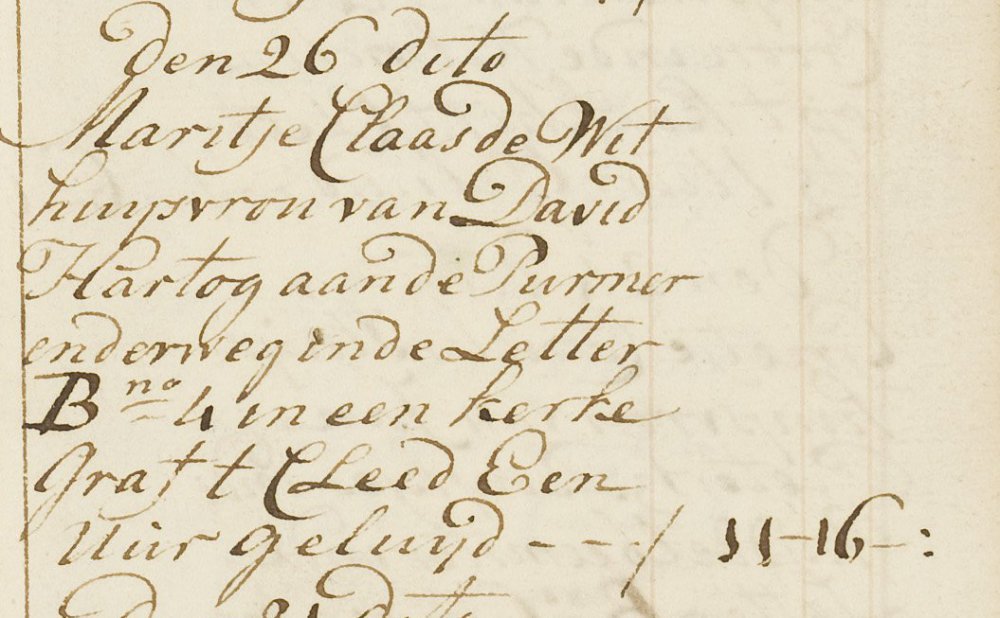 Den 26 dito
Maritje Claas de Wit
huijsvrou van David
Hartog aande Purmer
enderweg inde Letter
B no 4 in een kerke
graft t Cleed Een
Uur geluijd - - - / 11 - 16 - :
D 31 dito